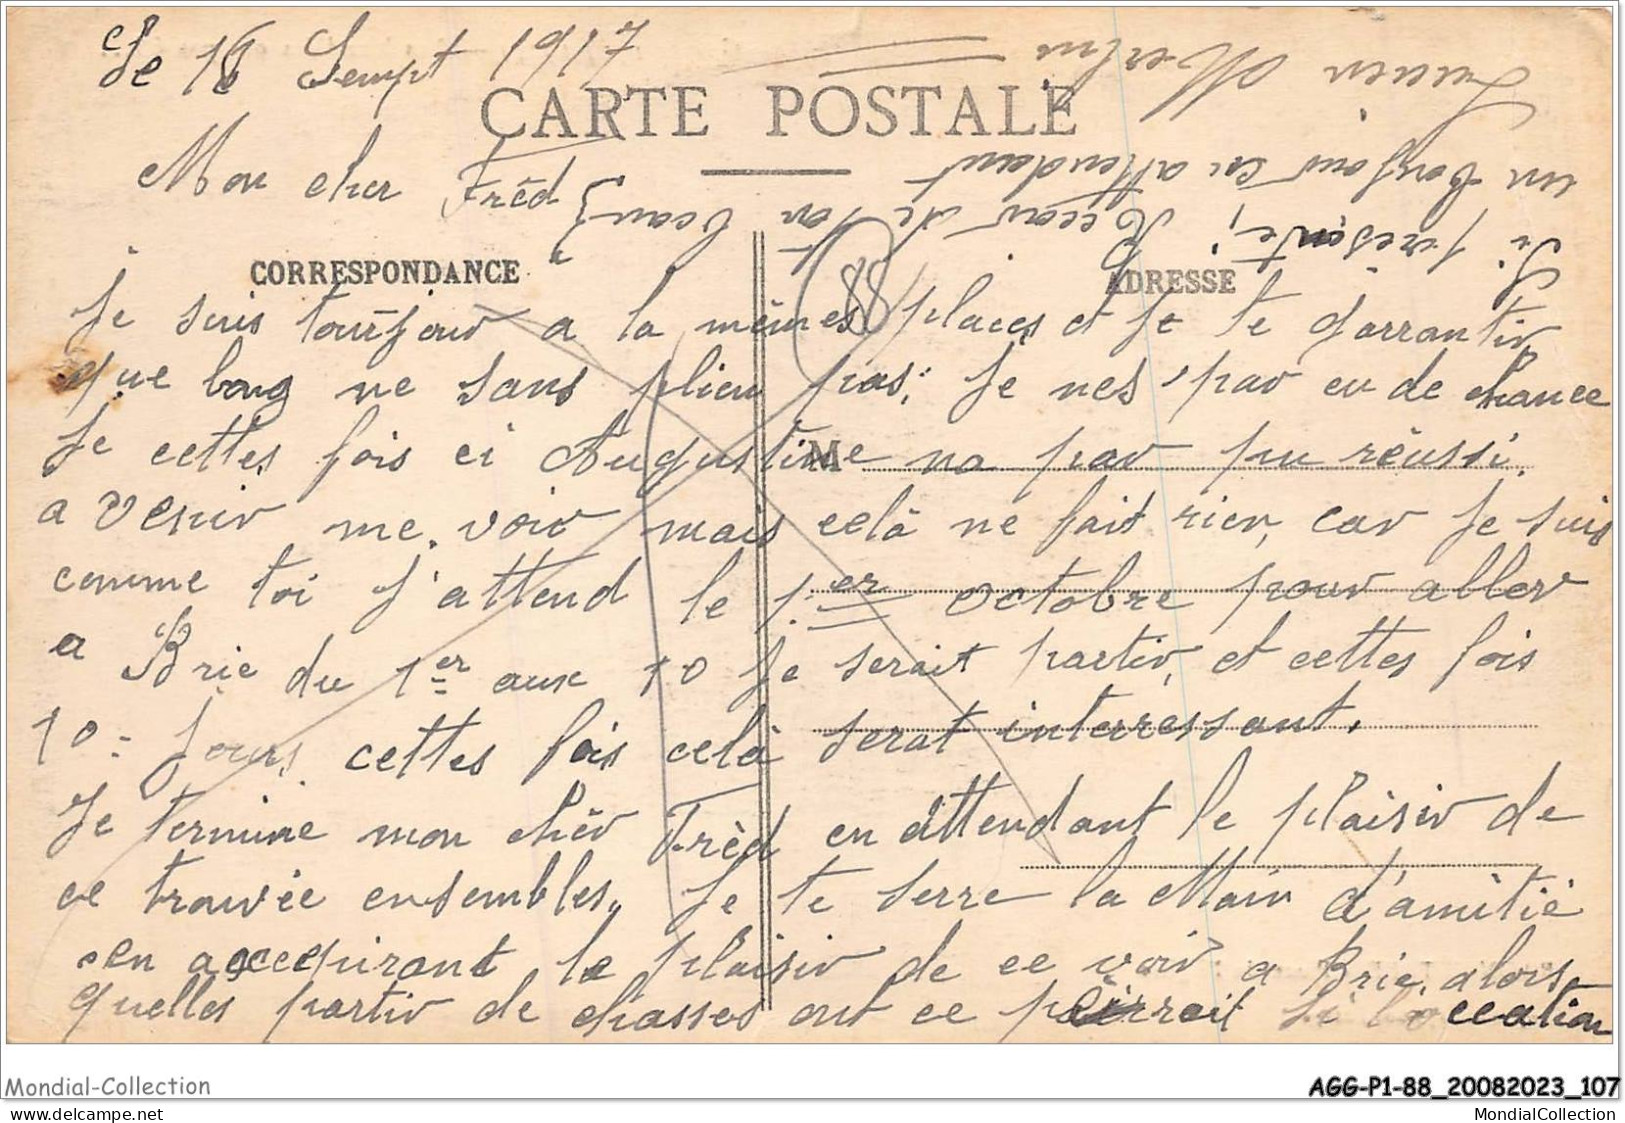 Le 18 Sempt 1917
CARTE POSTALE
Mon cher Fréd
CORRESPONDANCE
ADRESSE
88
Je suis tourjour a la mêmes places et je te garrantir
que long ne sans plien pas; Je nes par eu de chance
Je cettes fois ci Augustine na par pu réussi.
M
a venir me voir mais celà ne fait rien, car je suis
comme toi j'attend le 1er octobre pour aller
a Brie du 1er aux 10 je serait partir, et cettes fois
10 = jours cettes fois celà serat interressant.
Je termine mon chèr Frèd en attendant le plaisir de
ce trouvée ensembles. Je te serre la Main d'amitié
en accequirant le plaisir de ce voir a Brie, alors
quelles partir de chasses ont ce pourrait si l'occation
si présente, Recoi de ton beau
un bonjour en attendant
Lucien
Mondial-Collection
AGG-P1-88_20082023_107
MondialCollection